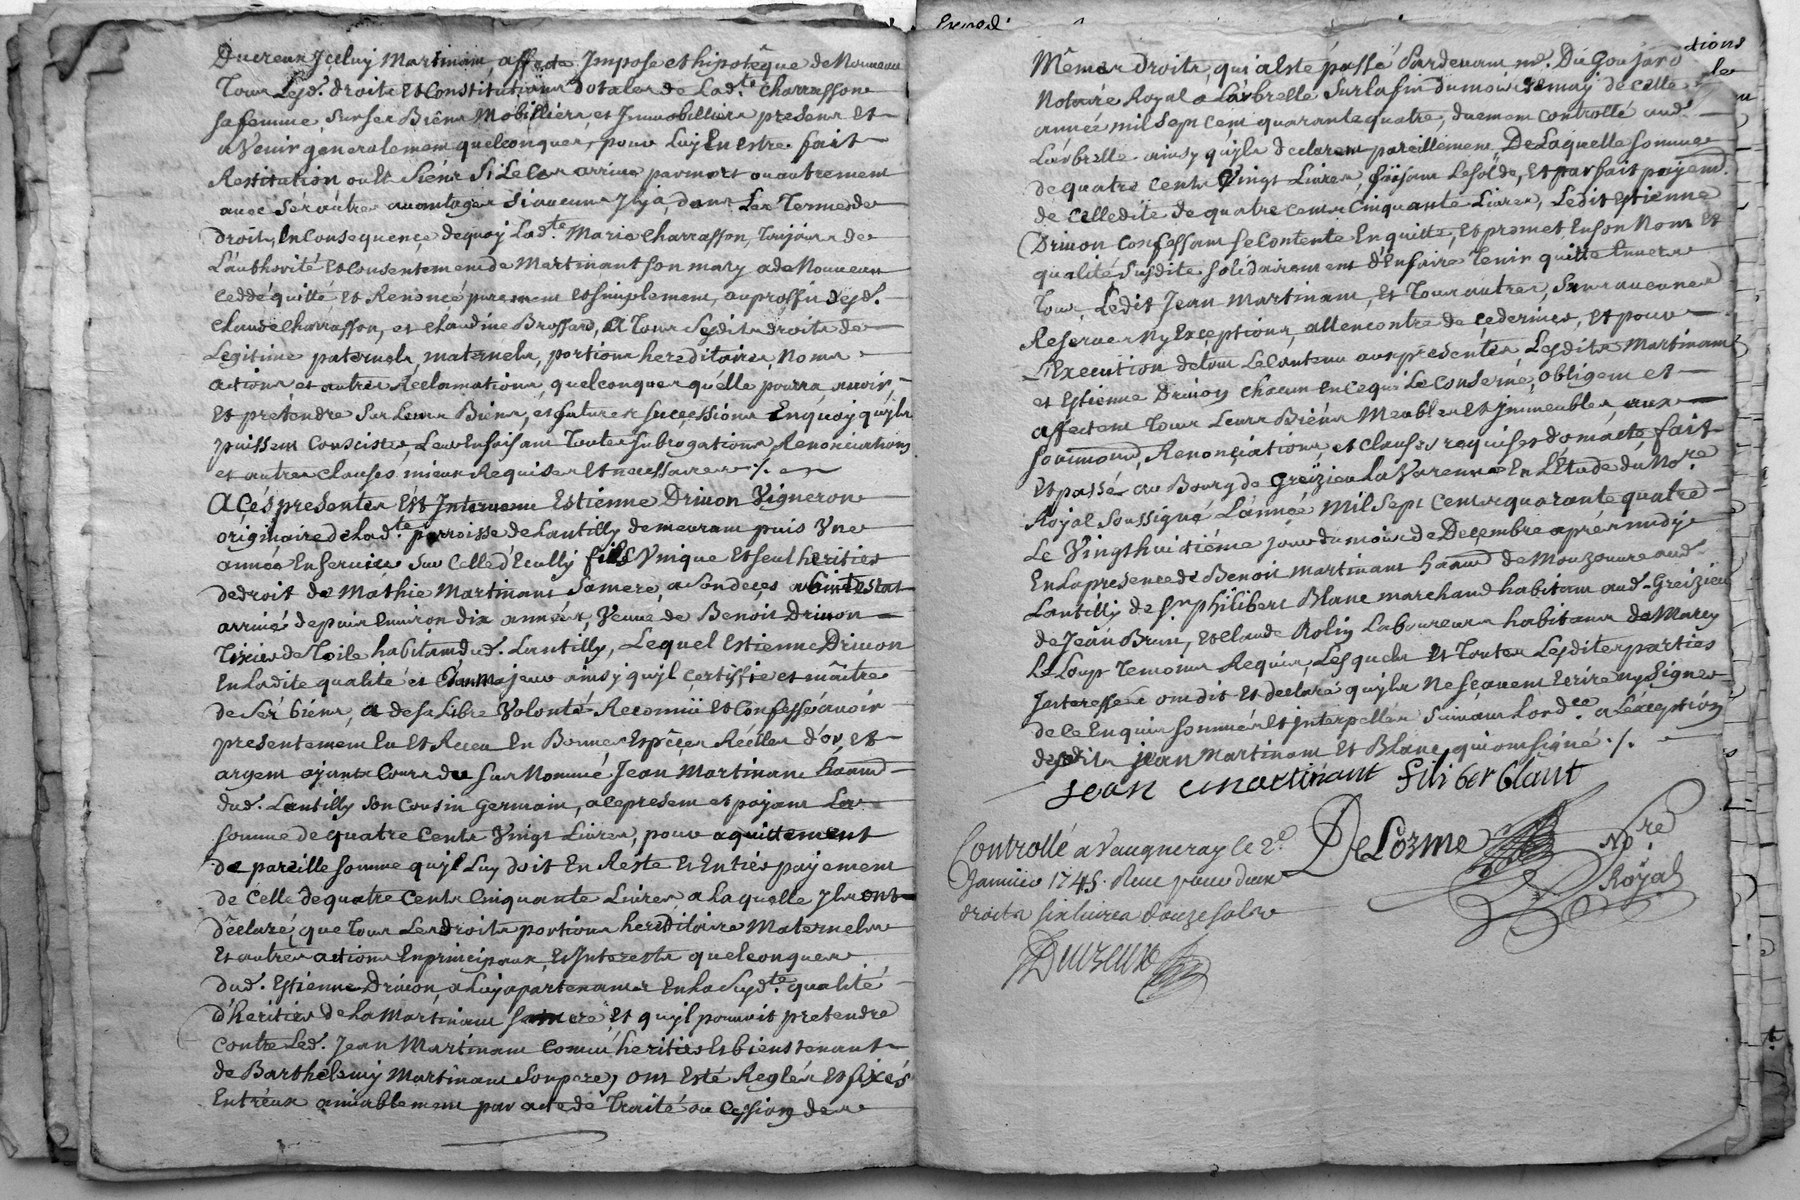 Ducreux Jceluy Martinant, affecte Impose et hipotêque de Nouveau
Tous Lesd. droits Et Constitutions dotales de Lad.te Charrasson
sa femme, sur ses Biêns Mobilliers, et Immobilliers presens Et
a Venir generalement quelconques, pour Luy En estre fait
Restitution ou Et Siéns Si Le Cas arrive par mort ou autrement
avec Sés autres avantages Si aucuns Jl y a, dans Les Termes de
droit, En Consequence de quoy Lad.te Marie Charrasson, toujours de
L'authorité et Consentement de Martinant son mary a de Nouveau
Ceddé quitté et Renoncé purement et simplement, au proffit desd.
Claude Charrasson, et Claudine Brossard, A Tous Sesdits droits de
Legitime paternels maternels, portions hereditaires, Noms
actions et autres Réclamations, quelconques qu'élle pourra avoir,
Et prétendre Sur Leurs Biêns, et futures Successions En quoy qu'yls
puissent Consister, Leur En faisant Toutes subrogations, Renonciations
et autres Clauses mieux Requises Et necessaires ./.
A Cés presentes Ést Intervenu Estienne Drivon Vigneron
originaire de Lad.te parroisse de Lantilly demeurant puis Une
année En service Sur Celle d'Ecully fils Vnique Et seul heritier
de droit de Mathie Martinant Sa mere, a Son deces abintestat
arrivé depuis Environ dix années, Veuve de Benoit Drivon
Tixier de Toile habitant dud. Lantilly, Lequel Estienne Drivon
En Ladite qualité et Comme majeur ainsy qu'yl Certiffie et maître
de Sés biéns, a de sa Libre Volonté Reconnü Et Confessé avoir
presentement Eu et Receu En Bonnes Espêces Réélles d'or, et
argent ayants Cours du Sus Nommé Jean Martinant
dud. Lantilly Son Cousin germain, a ce present et payant La
Somme de quatre Cents Vingt Livres, pour aquittement
de pareille Somme qu'yl Luy doit En Reste Et Entiér payement
de Celle de quatre Cents Cinquante Livres a La quelle Jls ont
déclaré, que Tous Les droits portions hereditaire Maternels
Et autres actions En principaux, Et Interests quelconques
dud. Estienne Drivon, a Luy apartenants En La Susd.te qualité
d'heritier de La Martinant Sa mere, Et qu'yl pouvoit pretendre
Contre Led. Jean Martinant Comme heritier Et bienstenant
de Barthélemy Martinant Son pere, ont Esté Reglés Et fixés
Entréux amiablement par acte de Traité ou Cession des
Mêmes droits, qui a Esté passé Pardevant me. Du Goujard
Notaire Royal a Larbrelle Sur la fin du mois de may de Cette
année mil Sept Cent quarante quatre, duement Controllé aud.
Larbrelle ainsy qu'yls déclarent pareillement De Laquelle Somme
de quatre Cents Vingt Livres, faisant Le Solde, Et parfait payem.t
de Celle dite de quatre Cents Cinquante Livres, Ledit Estienne
Drivon Confessant Se Contente En quitte, Et promet En son Nom Et
qualité Susdite Solidairement d'En faire Tenir quitte Envers
Tous, Ledit Jean Martinant, Et Tous autres, Sans aucunes
Reserves Ny Exceptions, allencontre de Ce dernier, Et pour
L'Exécution de tout Le Contenu aux presentes Lesdits Martinant
et Estienne Drivon Chacun En Ce qui Le Conserne, obligent et
affectent Tous Leurs Biéns Meubles et Jmmeubles, aux
Renonçiations, et Clauses requises fait
Et passé au Bourg de Greïzieu La Varenne En L'Étude du No.re
Royal Soussigné L'année Mil Sept Cents quarante quatre
Le Vingthuitiéme jour du mois de Decembre aprés midy
En La presence de Benoit Martinant de Mouzouvre aud.
Lantilly de Sr. Philibert Blanc marchand habitant aud. Greïzieu
de Jean Brun, et Claude Rolin Laboureurs habitans de Marcy
Le Loup Temoins Requis, Lesquels Et Toutes Lesdites parties
Interessées ont dit Et declaré qu'yls Ne Sçavent Ecrire ny Signer
de Ce Enquis Sommés Et Jnterpellés Suivant Lord.ce a L'éxception
desdits Jean Martinant Et Blanc, qui ont Signé ./.
Jean martinant filiber blanc
Controllé a Vaugneray Le 2.e
Janvier 1745. Receu pour deux
droits six livres douze sols
Ducreux
DeLorme No.re
Royal